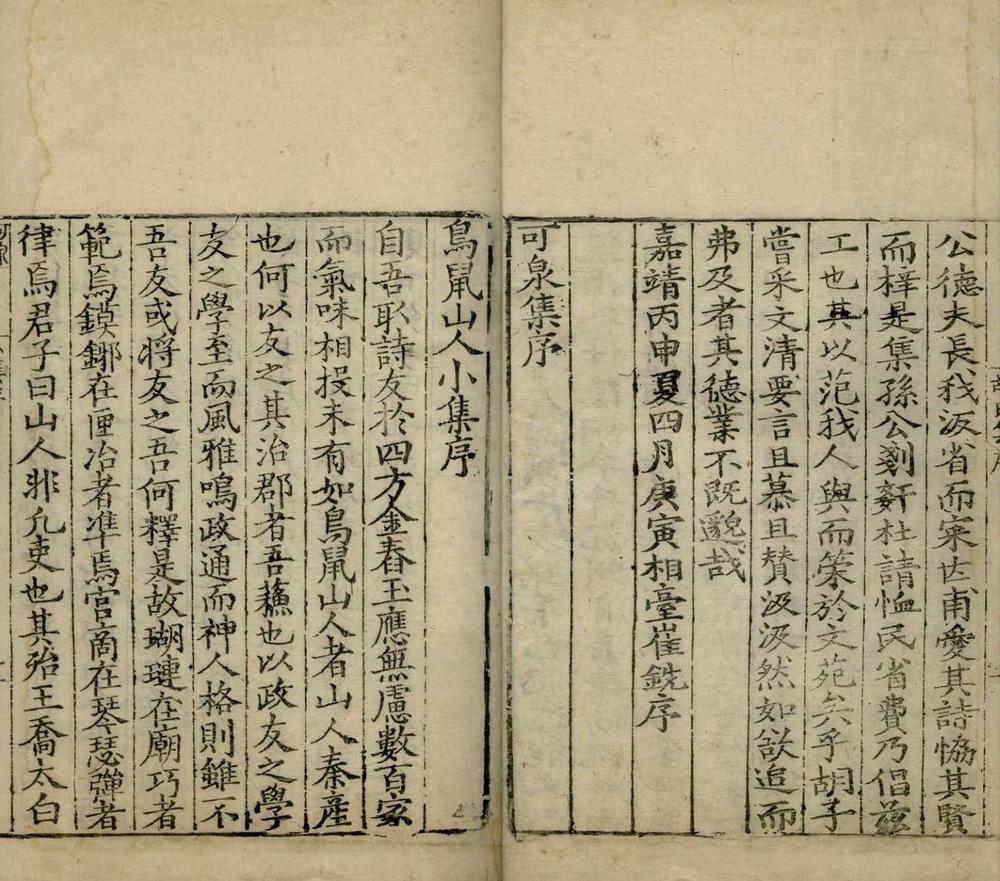 公德夫長我汳省而寀丗甫愛其詩恊其賢
而梓是集孫公剗姧杜請恤民省費乃倡茲
工也其以范我人與而策於文苑矣乎胡子
嘗采文清要言且慕且賛汲汲然如欲追而
弗及者其德業不既邈哉
嘉靖丙申夏四月庚寅相臺崔銑序
可泉集序
鳥鼠山人小集序
自吾耴詩友於四方金舂玉應無慮數百家
而氣味相投未有如鳥鼠山人者山人秦産
也何以友之其治郡者吾蘓也以政友之學
友之學至而風雅鳴政通而神人格則雖不
吾友或將友之吾何釋是故瑚璉在廟巧者
範焉鏌鋣在匣冶者準焉宮啇在琴瑟彈者
律焉君子曰山人非凢吏也其殆王喬太白